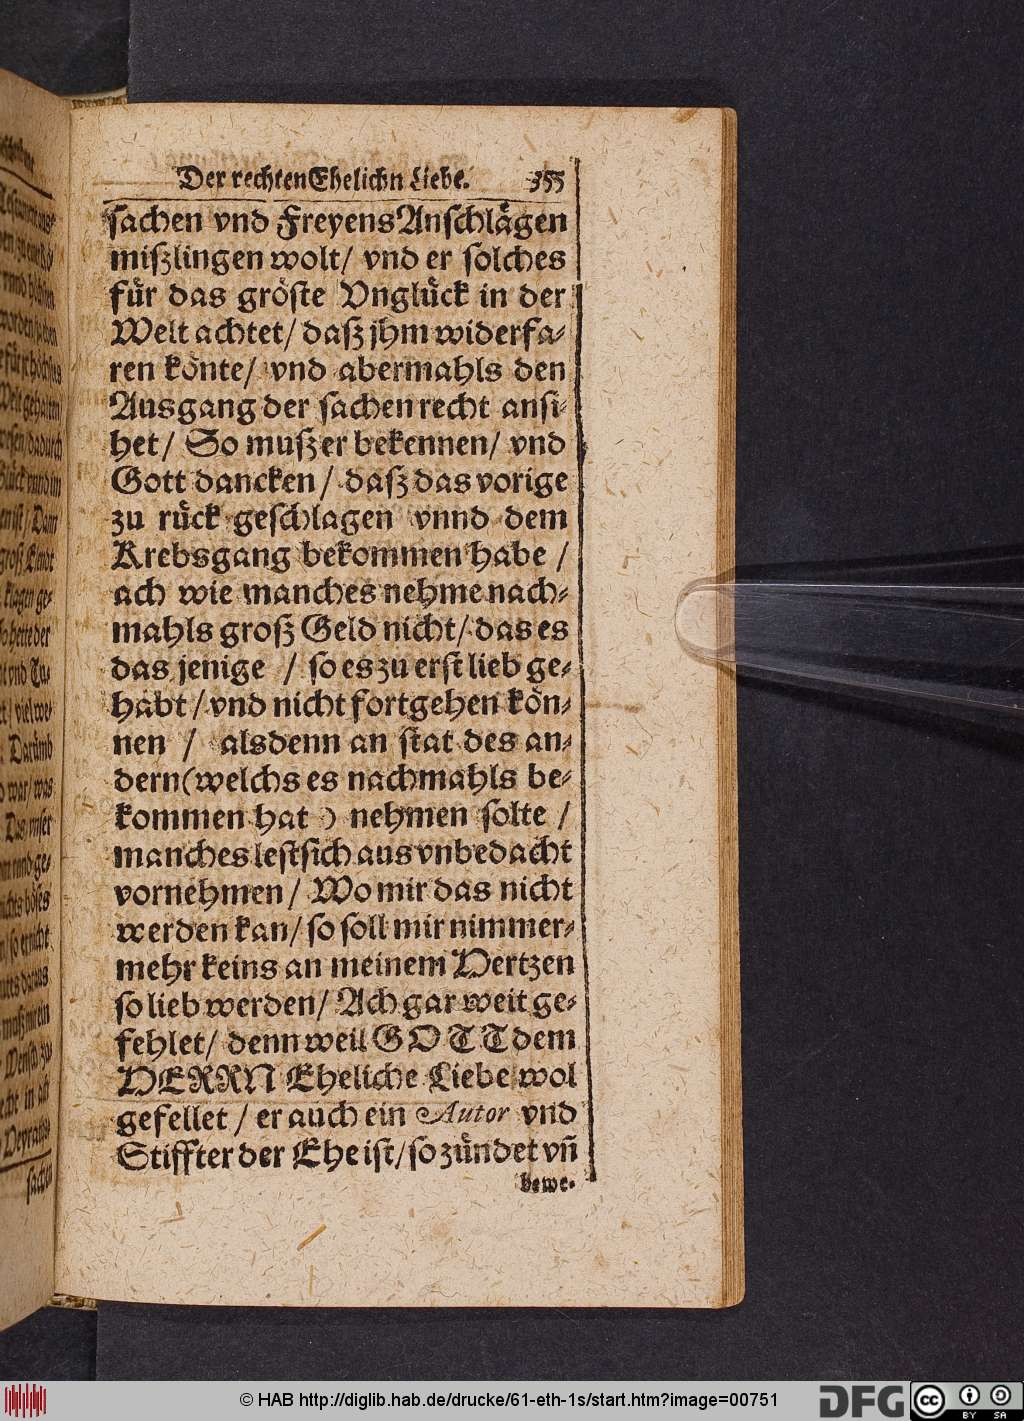 Der rechten Ehelichn Liebe. 355
sachen vnd Freyens Anschlägen
mißlingen wolt/ vnd er solches
für das gröste Vnglück in der
Welt achtet/ daß jhm widerfa-
ren könte/ vnd abermahls den
Ausgang der sachen recht ansi-
het/ So muß er bekennen/ vnd
Gott dancken/ daß das vorige
zu rück geschlagen vnnd dem
Krebsgang bekommen habe /
ach wie manches nehme nach-
mahls groß Geld nicht/ das es
das jenige / so es zu erst lieb ge-
habt/ vnd nicht fortgehen kön-
nen / alsdenn an stat des an-
dern (welchs es nachmahls be-
kommen hat ) nehmen solte /
manches lest sich aus vnbedacht
vornehmen/ Wo mir das nicht
werden kan/ so soll mir nimmer-
mehr keins an meinem Hertzen
so lieb werden/ Ach gar weit ge-
fehlet/ denn weil GOTT dem
HERRN Eheliche Liebe wol
gefellet / er auch ein Autor vnd
Stiffter der Ehe ist/ so zündet vñ
bewe-
© HAB http://diglib.hab.de/drucke/61-eth-1s/start.htm?image=00751
DFG
cc
BY SA